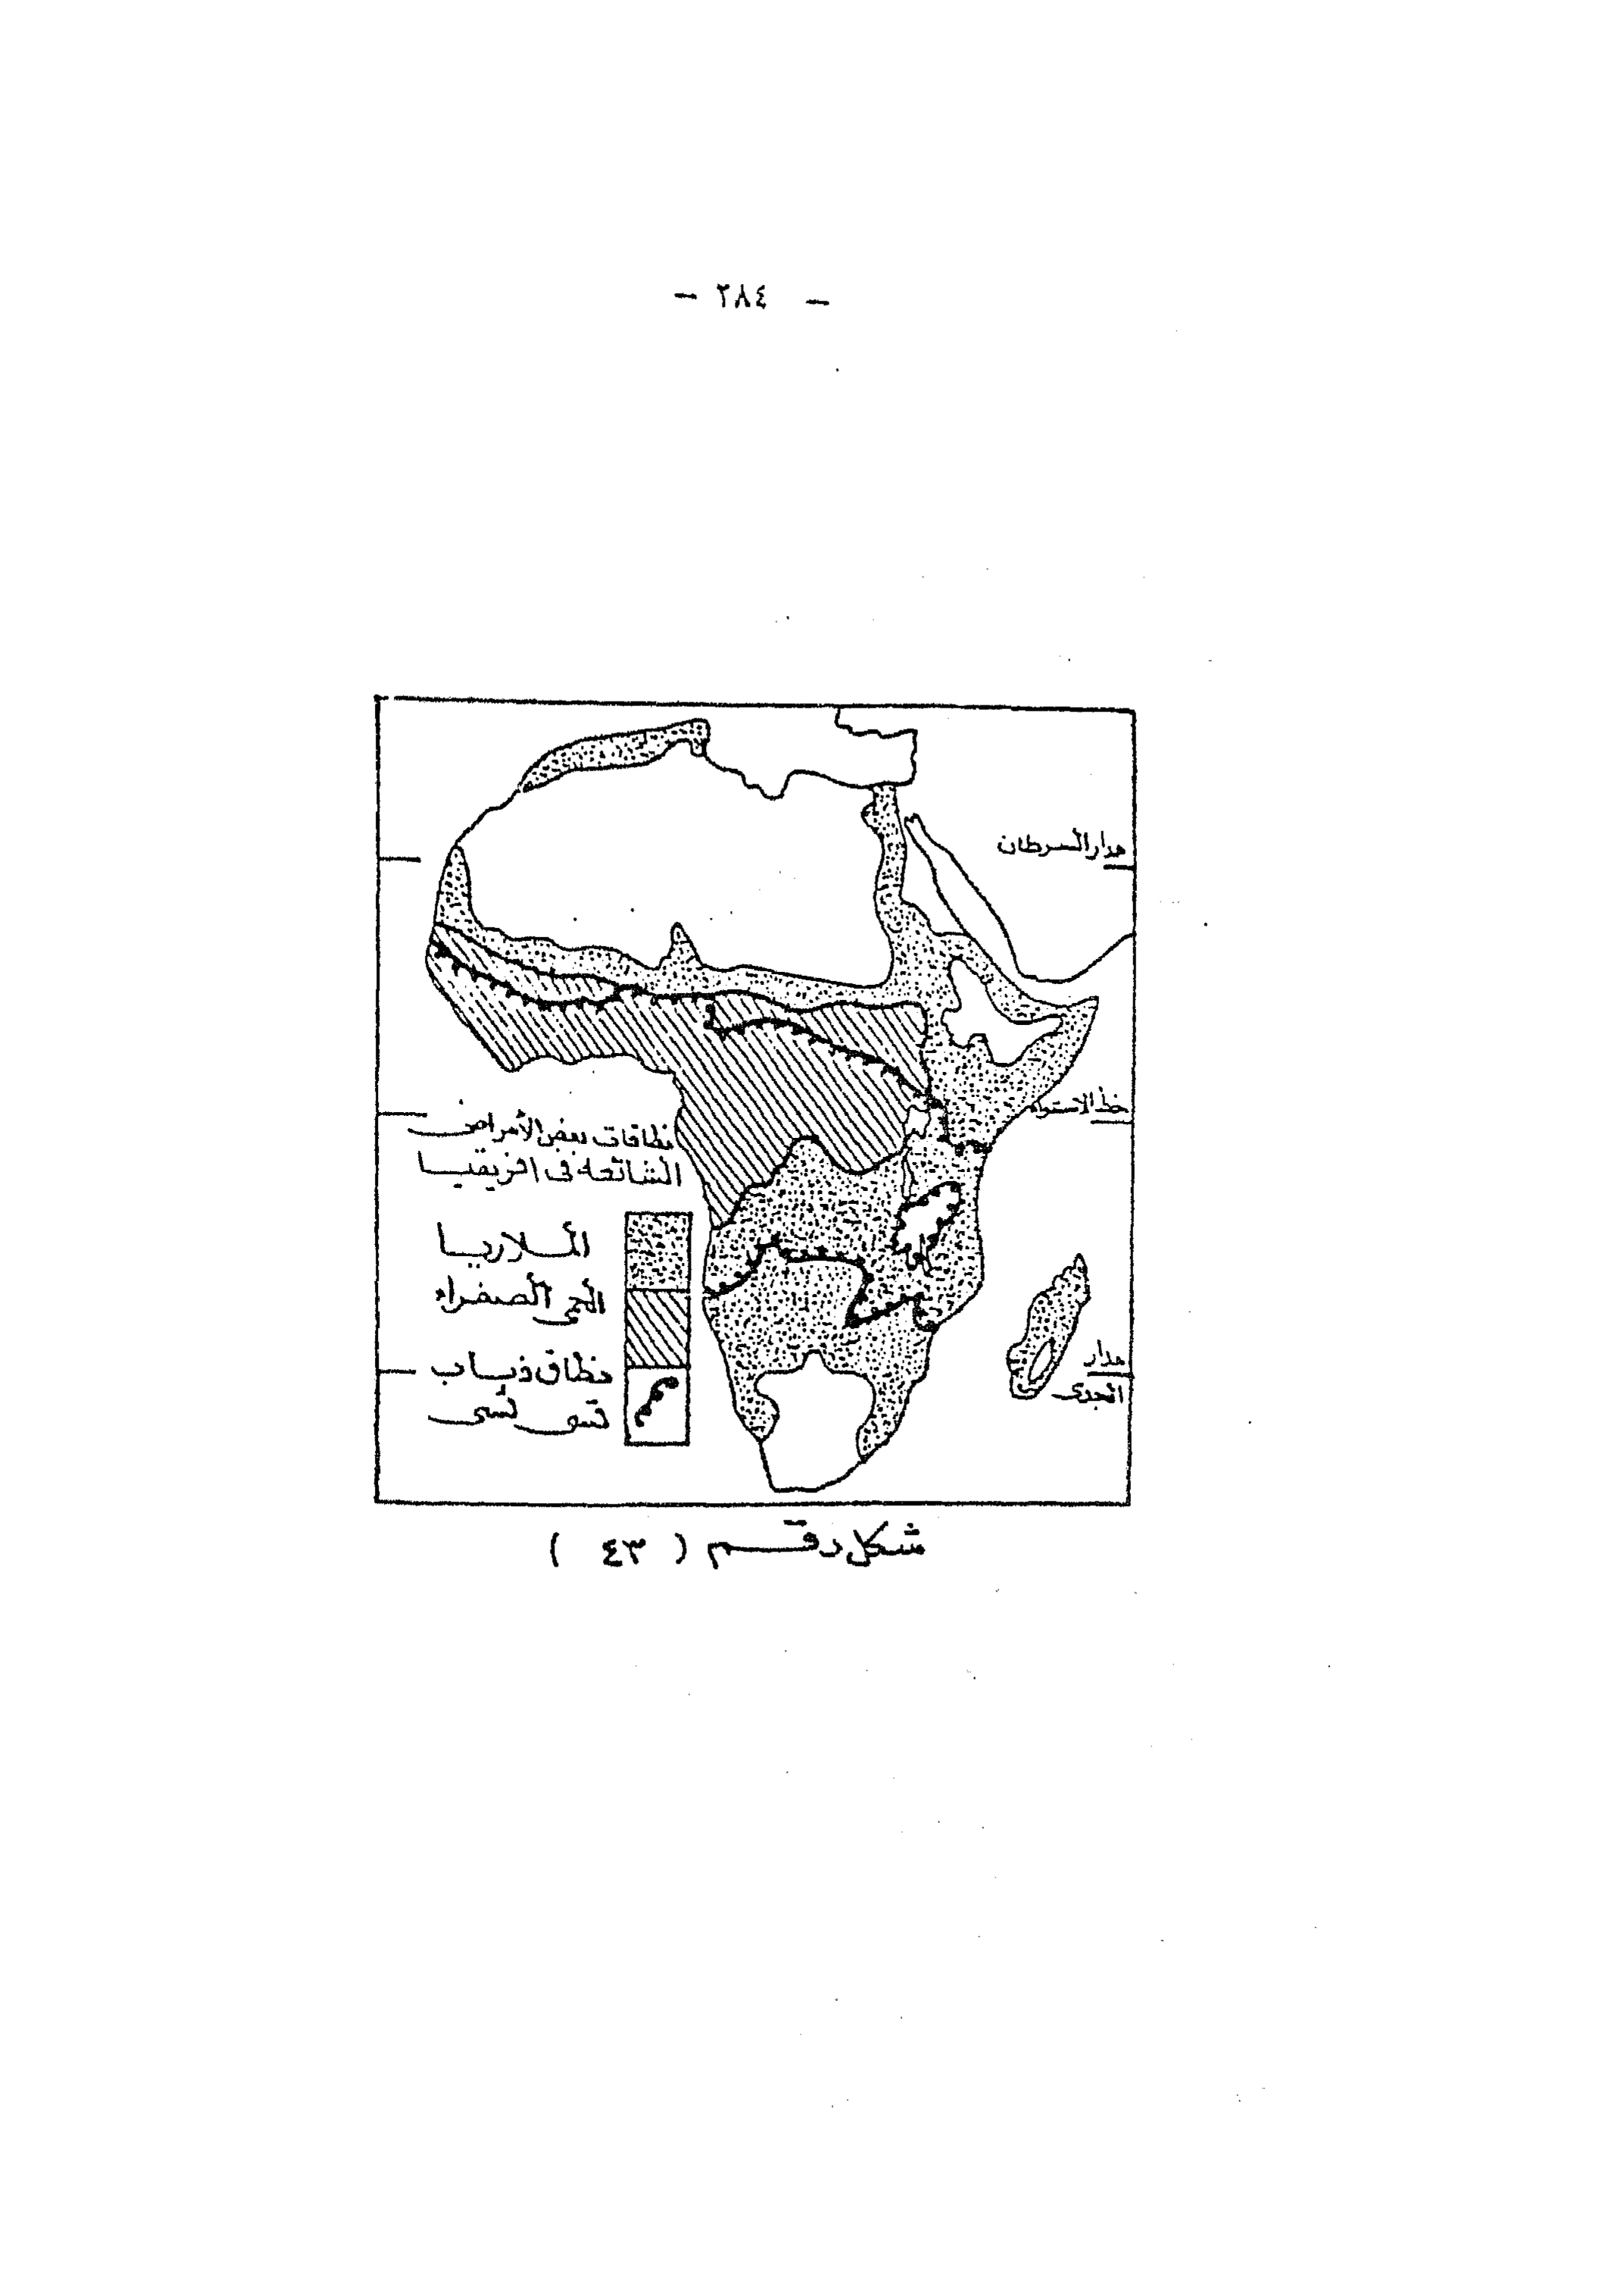 - ٢٨٤ -
مدار السرطان
خط الاستواء
نطاقات بعض الأمراض
الشائعة فى افريقيا
الملاريا
الحمى الصفراء
نطاق ذباب
تسى تسى
مدار
الجدى
شكل رقم ( ٤٣ )